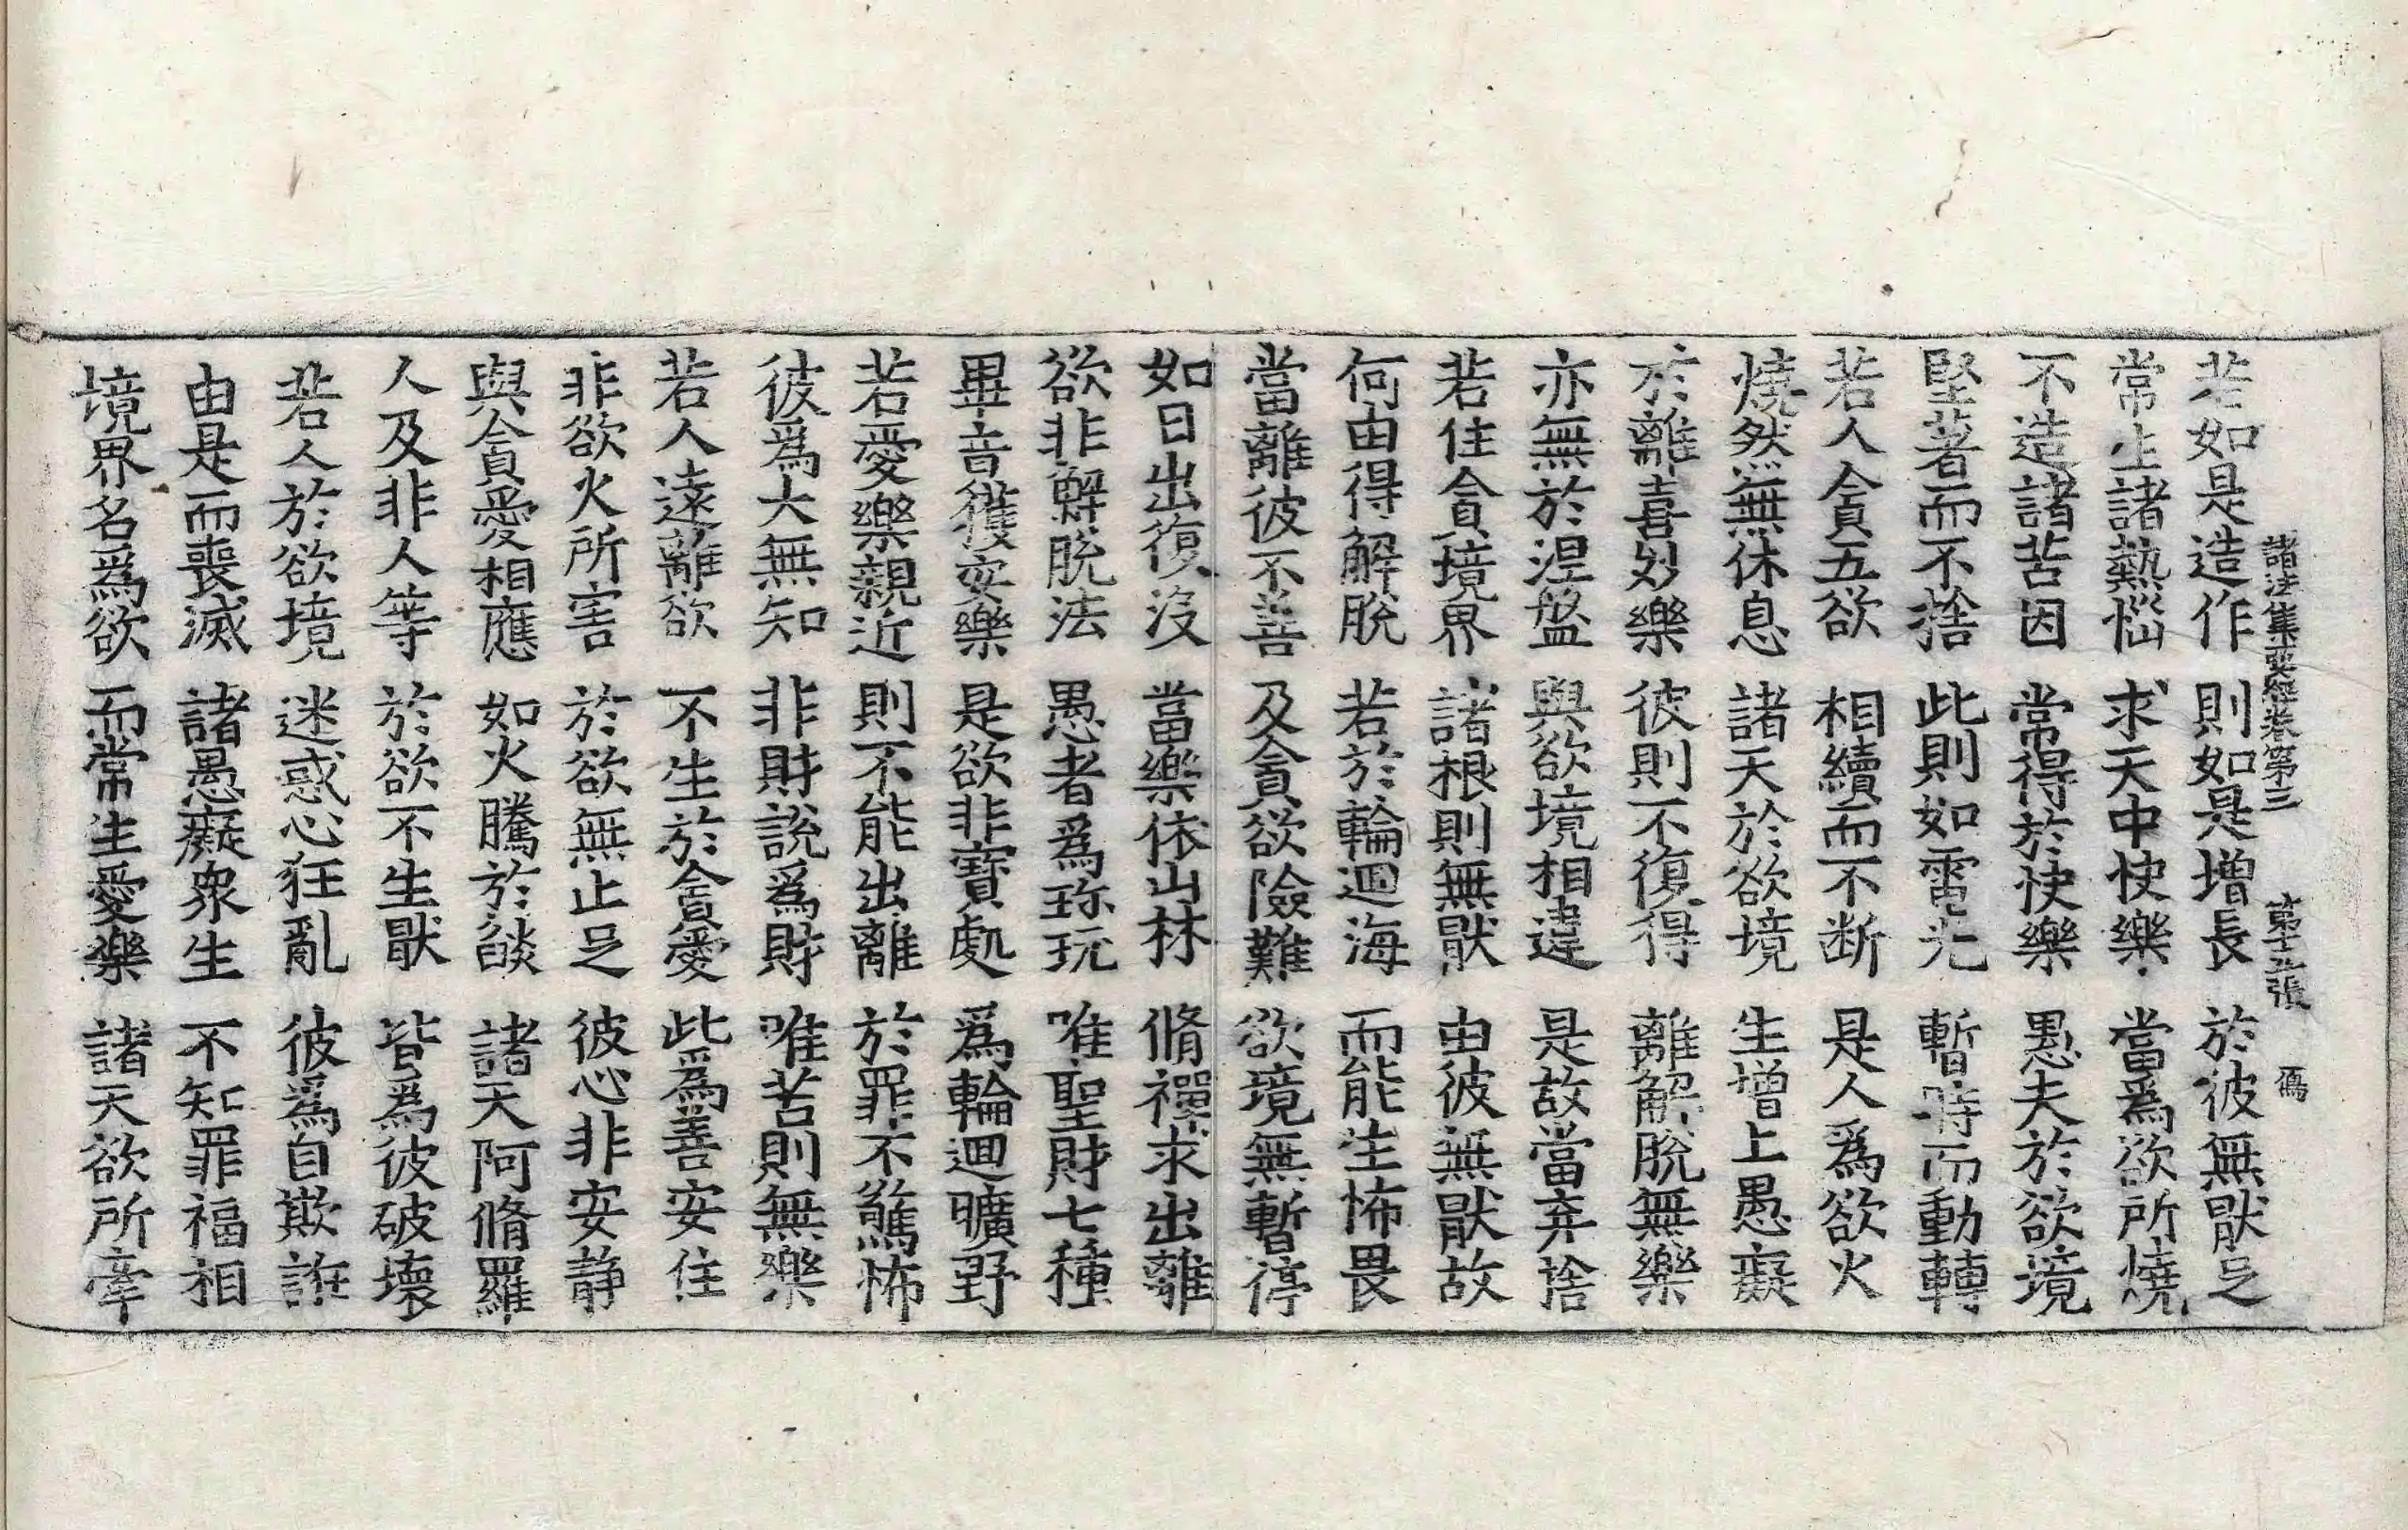 諸法集要經卷第三　第十五張　傿
若如是造作　則如是增長　於彼無猒足
常生諸熱惱　求天中快樂　當爲欲所燒
不造諸苦因　常得於快樂　愚夫於欲境
堅著而不捨　此則如電光　暫時而動轉
若人貪五欲　相續而不断　是人爲欲火
燒然無休息　諸天於欲境　生增上愚癡
於離喜妙樂　彼則不復得　離解脫無樂
亦無於涅盤　與欲境相違　是故當弃捨
若住貪境界　諸根則無猒　由彼無猒故
何由得解脫　若於輪迴海　而能生怖畏
當離彼不善　及貪欲險難　欲境無暫停
如日出復没　當樂依山林　脩禪求出離
欲非解脫法　愚者爲珎玩　唯聖財七種
畢竟獲安樂　是欲非寶處　爲輪迴曠野
若愛樂親近　則不能出離　於罪不驚怖
彼爲大無知　非財說爲財　唯苦則無樂
若人遠離欲　不生於貪愛　此爲善安住
非欲火所害　於欲無止足　彼心非安静
與貪愛相應　如火騰於燄　諸天阿脩羅
人及非人等　於欲不生猒　皆爲彼破壞
若人於欲境　迷惑心狂亂　彼爲自欺誑
由是而喪滅　諸愚癡衆生　不知罪福相
境界名爲欲　而常生愛樂　諸天欲所牽